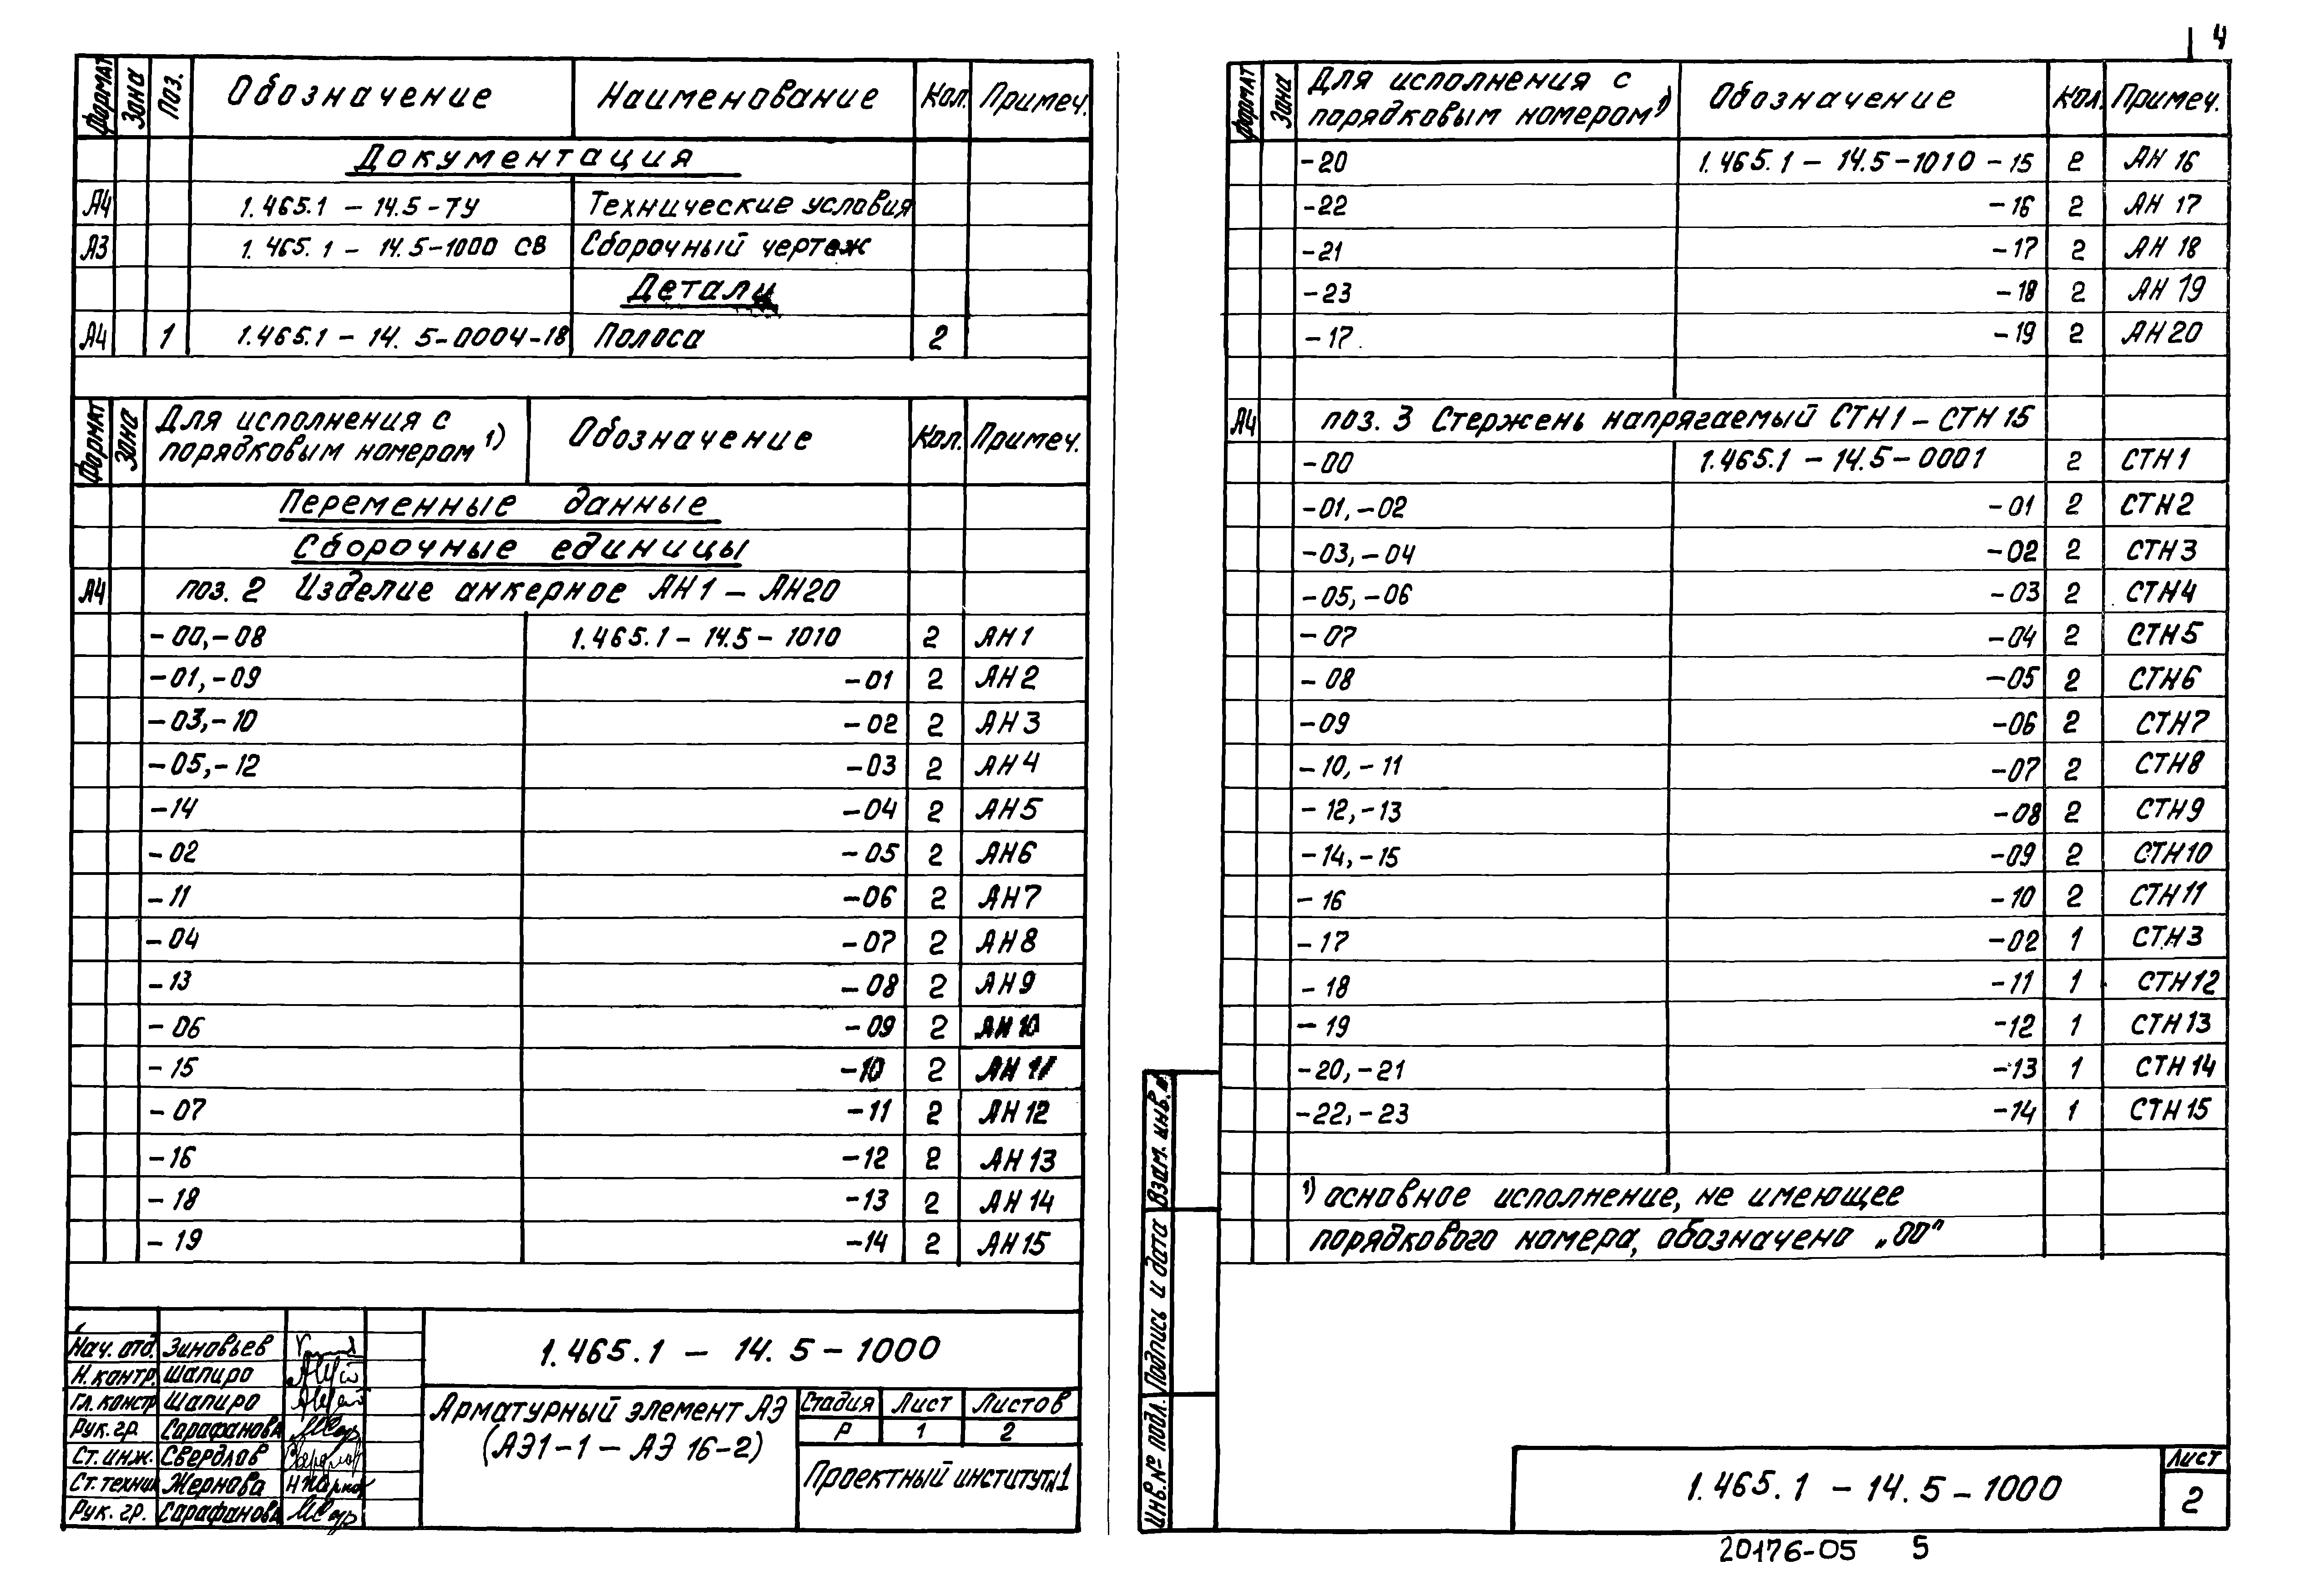 Формат Зона Поз. Обозначение Наименование Кол. Примеч.
Документация
А4 1.465.1 – 14.5-ТУ Технические условия
А3 1.465.1 – 14.5-1000 СВ Сборочный чертеж
Детали
А4 1 1.465.1 – 14.5-0004-18 Полоса 2
Формат Зона Для исполнения с порядковым номером 1) Обозначение Кол. Примеч.
Переменные данные
Сборочные единицы
А4 поз. 2 Изделие анкерное АН1 – АН20
-00,-08 1.465.1 – 14.5 – 1010 2 АН1
-01,-09 -01 2 АН2
-03,-10 -02 2 АН3
-05,-12 -03 2 АН4
-14 -04 2 АН5
-02 -05 2 АН6
-11 -06 2 АН7
-04 -07 2 АН8
-13 -08 2 АН9
-06 -09 2 АН10
-15 -10 2 АН11
-07 -11 2 АН12
-16 -12 2 АН13
-18 -13 2 АН14
-19 -14 2 АН15
1.465.1 – 14.5 – 1000
Нач. отд. Зиновьев
Н.контр. Шапиро
Гл. констр Шапиро
Рук. гр. Сарафанова
Ст. инж. Свердлов
Ст. техник Жернова
Рук. гр. Сарафанова
Арматурный элемент АЭ
(АЭ1-1 – АЭ 16-2)
Стадия Лист Листов
Р 1 2
Проектный институт №1
4
Формат Зона Для исполнения с порядковым номером 1) Обозначение Кол. Примеч.
-20 1.465.1 – 14.5-1010 -15 2 АН 16
-22 -16 2 АН 17
-21 -17 2 АН 18
-23 -18 2 АН 19
-17 -19 2 АН20
А4 поз. 3 Стержень напрягаемый СТН1 – СТН 15
-00 1.465.1 – 14.5 – 0001 2 СТН1
-01,-02 -01 2 СТН2
-03,-04 -02 2 СТН3
-05,-06 -03 2 СТН4
-07 -04 2 СТН5
-08 -05 2 СТН6
-09 -06 2 СТН7
-10,-11 -07 2 СТН8
-12,-13 -08 2 СТН9
-14,-15 -09 2 СТН10
-16 -10 2 СТН11
-17 -02 1 СТН3
-18 -11 1 СТН12
-19 -12 1 СТН13
-20,-21 -13 1 СТН14
-22,-23 -14 1 СТН15
1) основное исполнение, не имеющее
порядкового номера, обозначено „00"
Взам. инв. №
Подпись и дата
Инв. № подл.
1.465.1 – 14.5 – 1000
Лист
2
20176-05 5